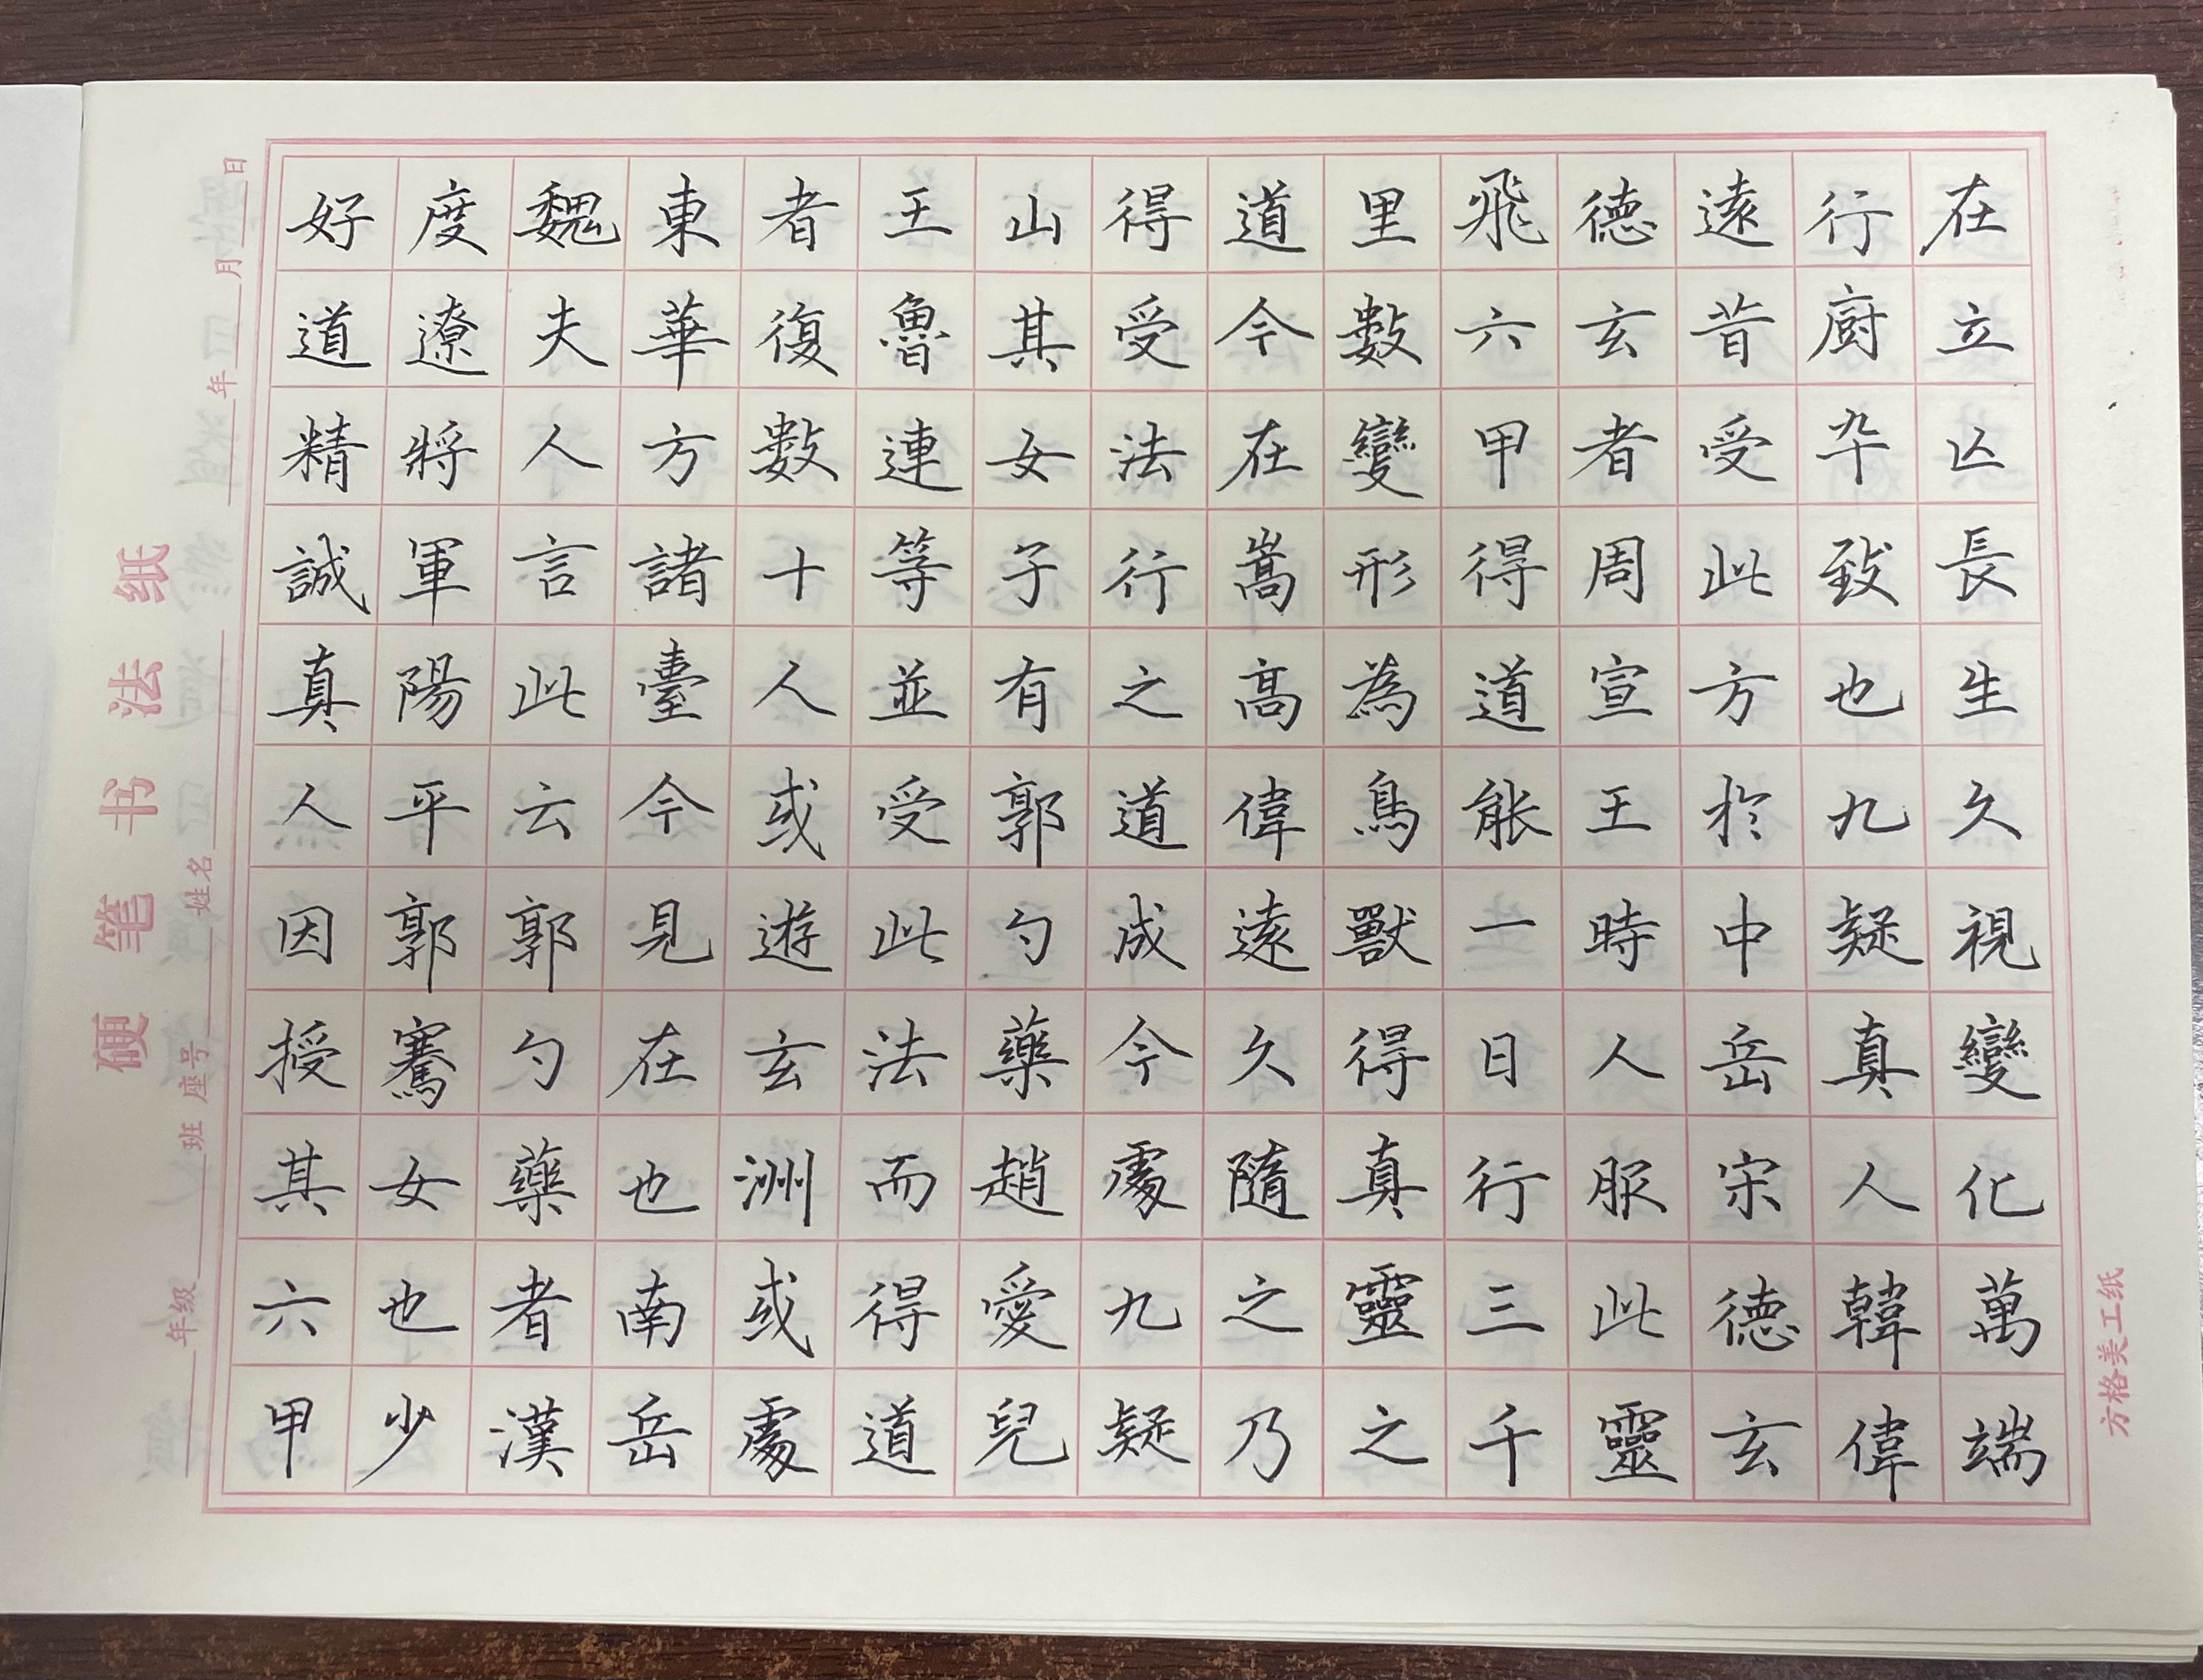 在立亾長生久視變化萬端
行廚卒致也九疑真人韓偉
遠昔受此方於中岳宋德玄
德玄者周宣王時人服此靈
飛六甲得道能一日行三千
里數變形為鳥獸得真靈之
道今在嵩高偉遠久隨之乃
得受法行之道成今處九疑
山其女子有郭勺藥趙愛兒
王魯連等並受此法而得道
者復數十人或遊玄洲或處
東華方諸臺今見在也南岳
魏夫人言此云郭勺藥者漢
度遼將軍陽平郭騫女也少
好道精誠真人因授其六甲
硬笔书法纸
年级 班 座号 姓名 年 月 日
方格美工纸